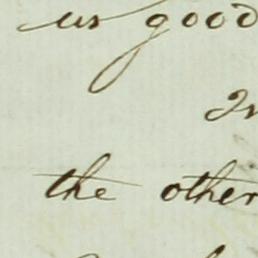 us good
In
the other